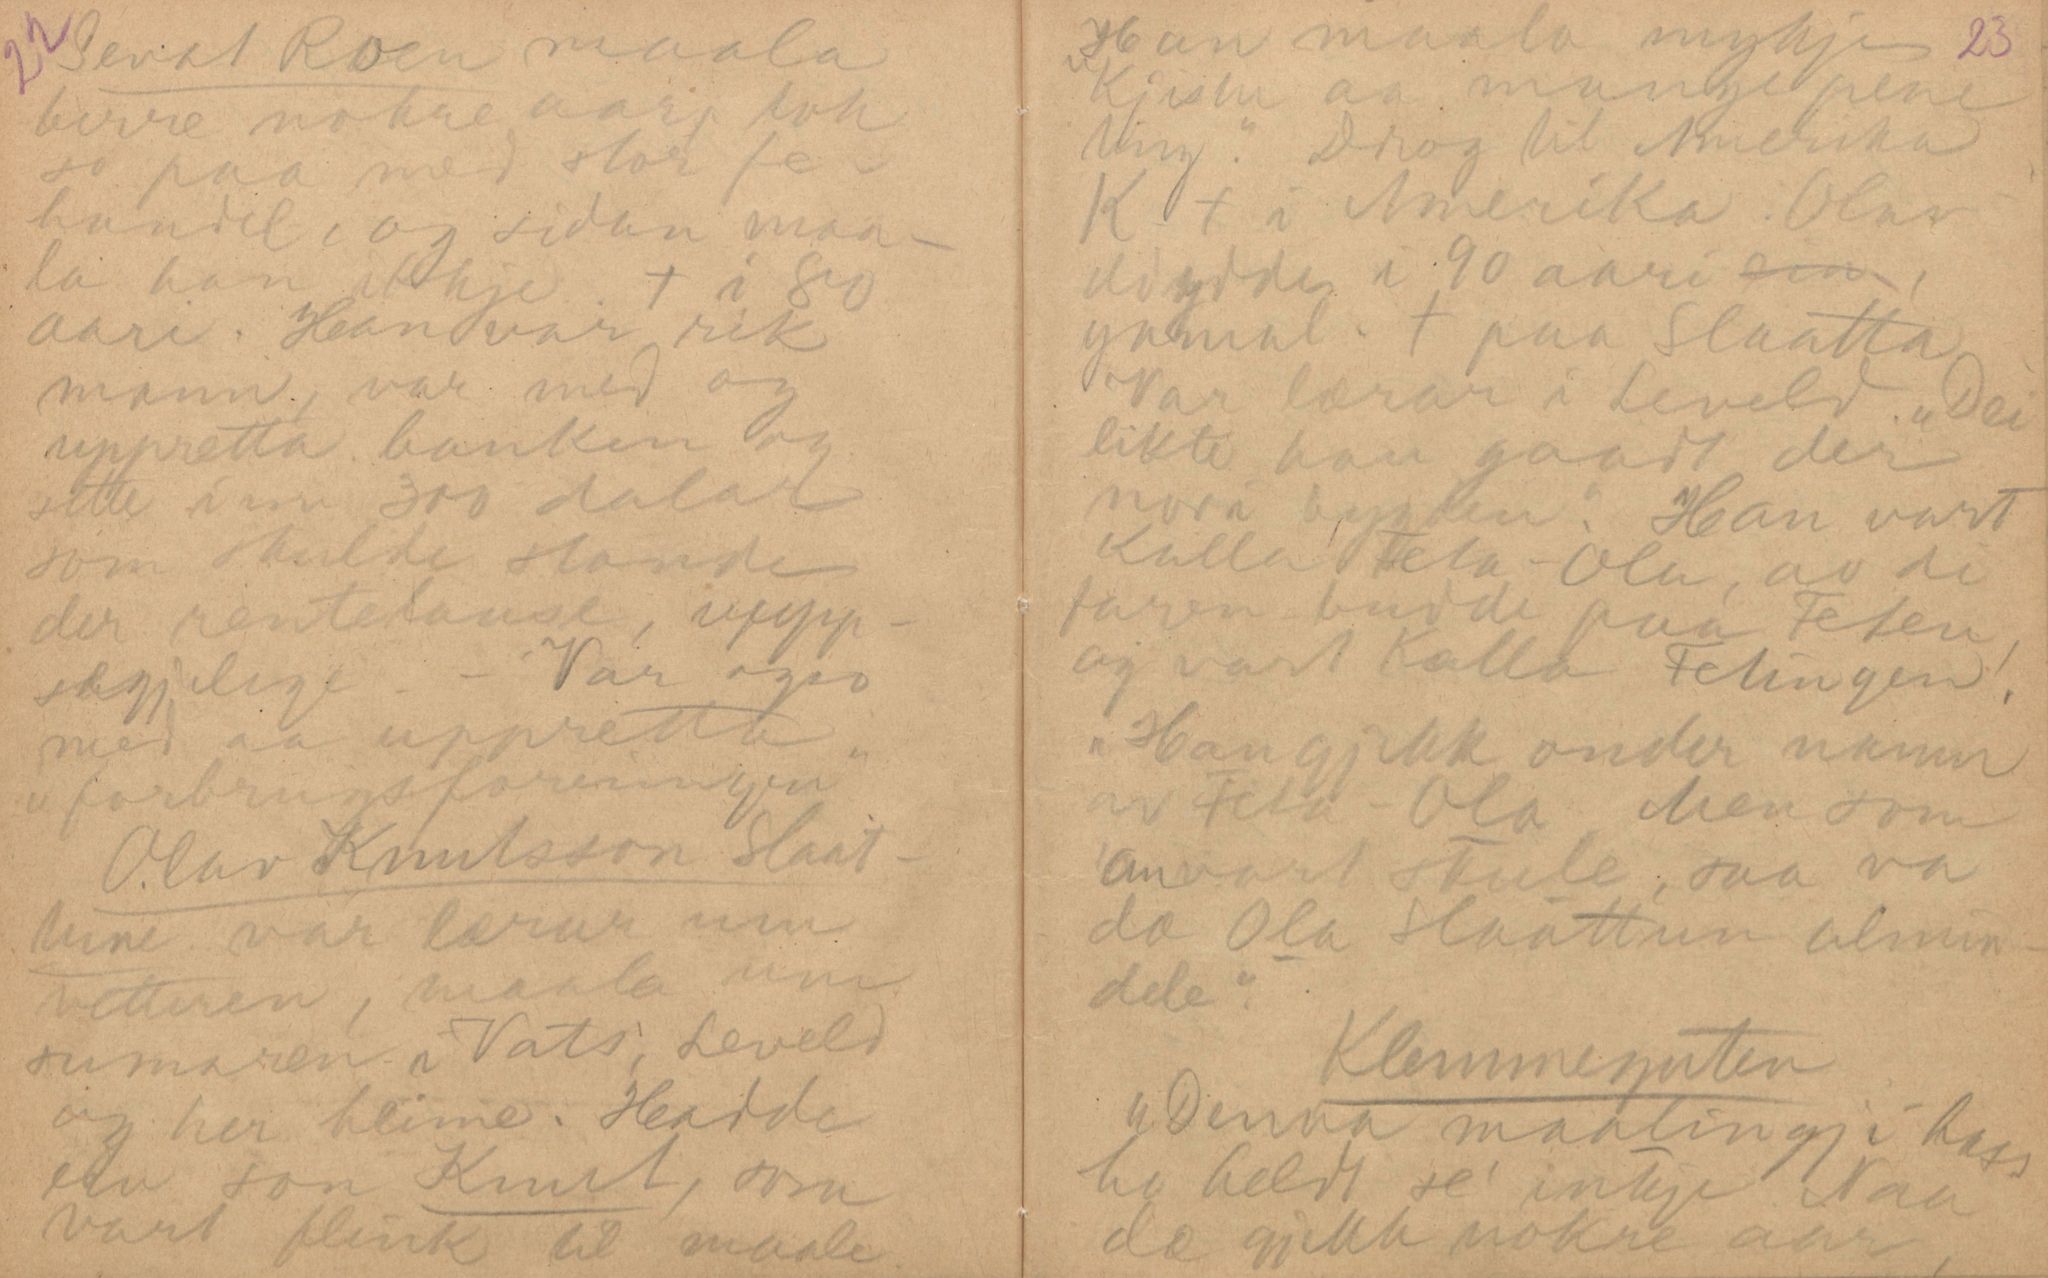 22
Sevat Roen maala
berre nokre aar, tok
so paa med stor fe-
handel, og sidan maa-
la han ikkje. + i 80
aari. Han var rik
mann, var med og
uppretta banken og
sette inn 300 dalar
som skulde stande
der rentelause, uupp-
segjelege. - Var ogso
med aa uppretta
"forbrugsforeningen"
Olav Knutsson Slaat-
tune var lærar um
vetteren, maala um
sumaren i Vats, Leveld
og her heime. Hadde
ein son Knut, som
vart flink til maale
23
"Han maala mykje
kjistu aa mange pene
ting". Drog til Amerika
K + i Amerika. Olav
döydde i 90 aari ein,
gamal. + paa Slaatta
Var lærar i Leveld. "Dei
likte han gaadt der
nori bygden". Han vart
kalla Feta-Ola, av di
faren budde paa Feten,
og vart kalla Fetingen.
"Han gjekk onder namn
av Feta-Ola. Men som
an vart skule, saa va
dæ Ola Slaattun almin-
dele".
Klemmeguten
"Denna maalingji hass
ha heldt se' intkje. Naa
dæ gjekk nokre aar,